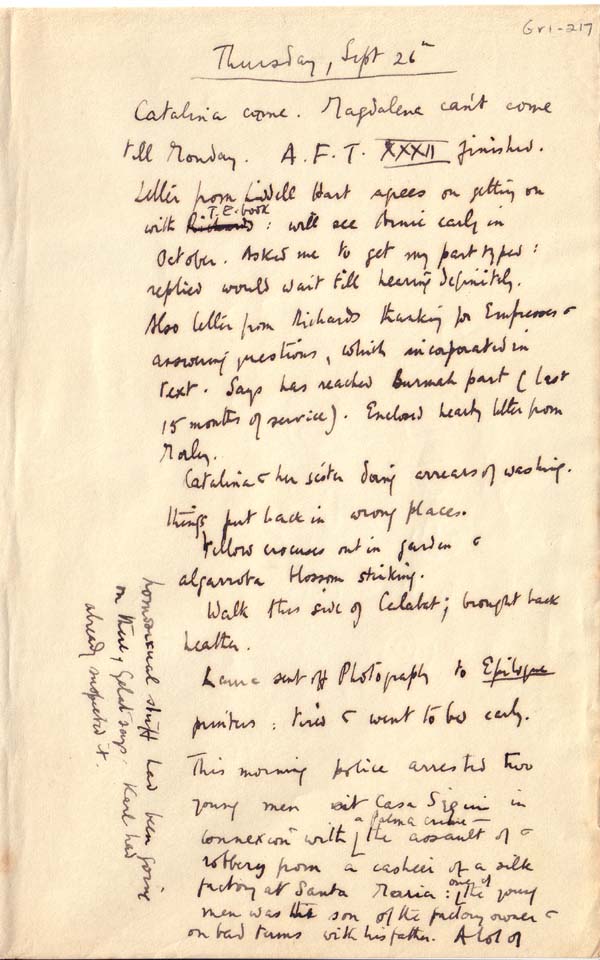 GrI-217
Thursday, Sept 26th
Catalina came. Magdalena can't come
till Monday. A.F.T. XXXII finished.
Letter from Liddell Hart agrees on getting on
T.E. book
with Richards: will see Annie early in
October. Asked me to get my part typed:
replied would wait till hearing definitely.
Also letter from Richards thanking for Empresses &
answering questions, which incorporated in
text. Says has reached Burmah part (last
15 months of service). Enclosed hearty letter from
Morley.
Catalina & her sister doing arrears of washing.
Things put back in wrong places.
Yellow crocuses out in garden &
algarroba blossom stinking.
Walk this side of Calabat; brought back
heather.
Laura sent off Photograph to Epilogue
printers: tired & went to bed early.
This morning police arrested two
young men at Casa in
a Palma crime –
connexion with the assault of &
robbery from a cashier of a silk
factory at Santa Maria: one of the young
men was the son of the factory owner &
on bad terms with his father. A lot of
homosexual stuff had been going
on there, Gelat says. Karl had
already suspected it.